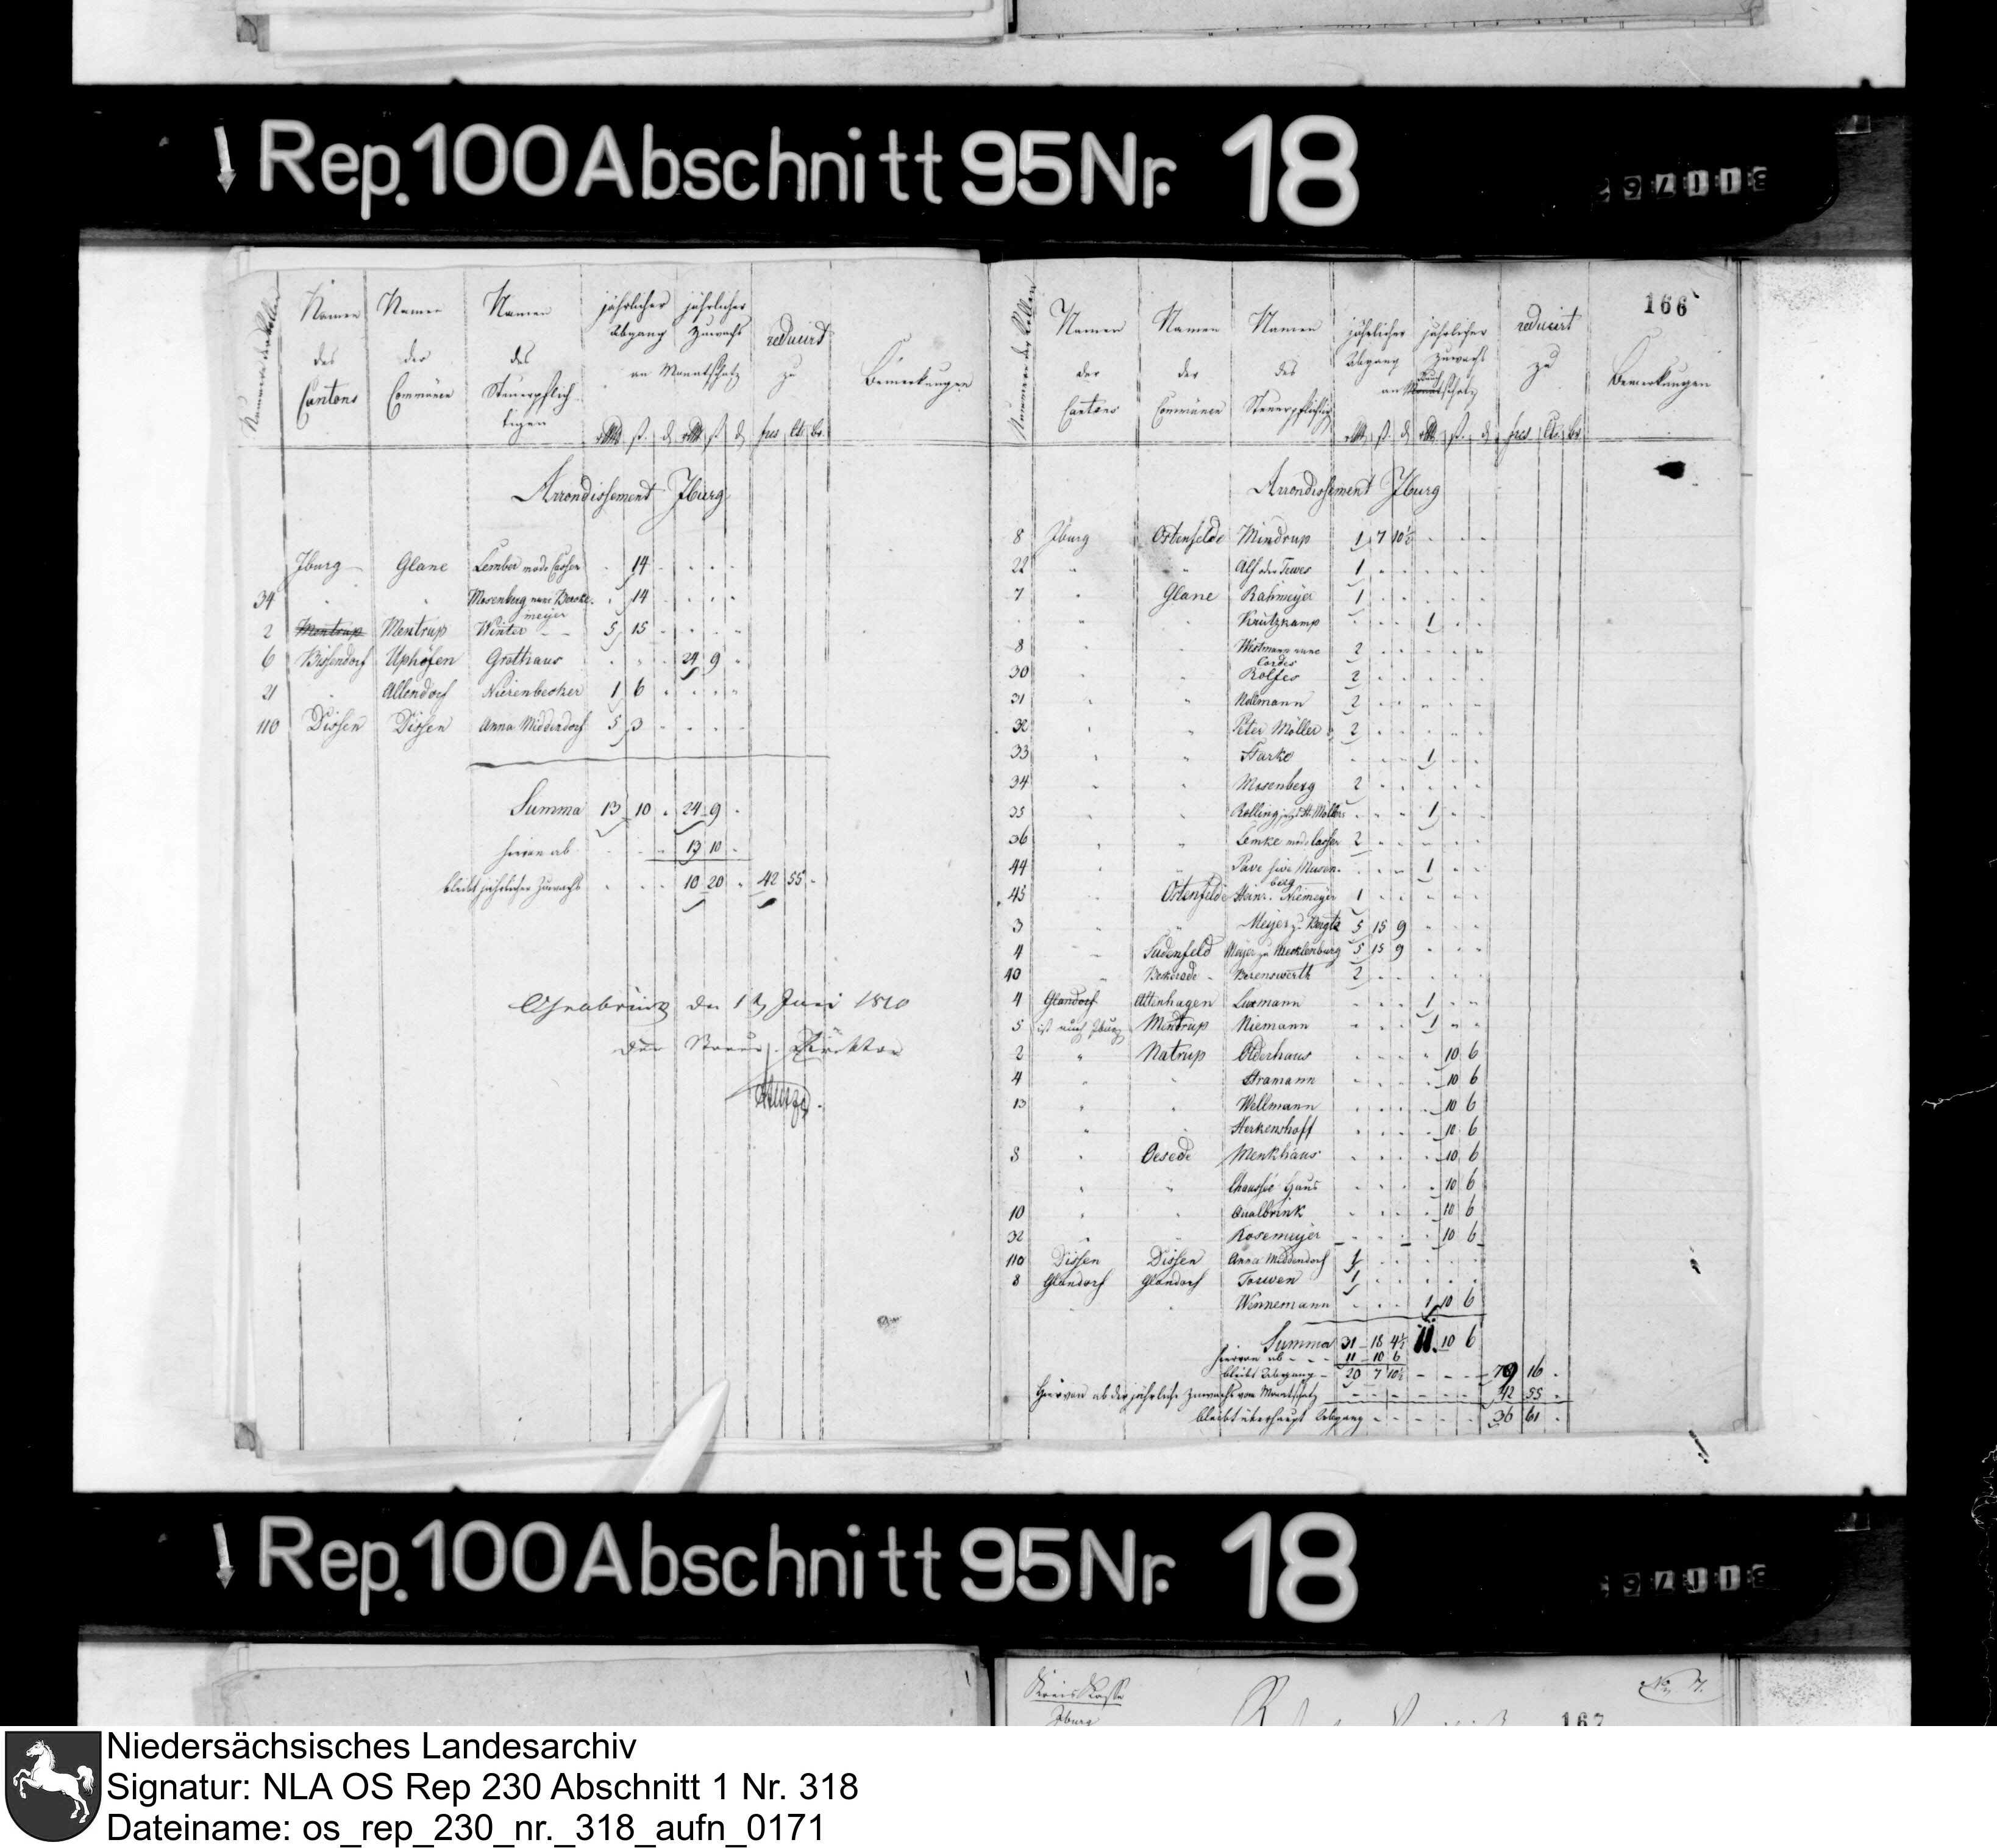 Rep. 100 Abschnitt 95 Nr. 18
Nummer der Rollen
Namen des Cantons
Namen der Commünen
Namen des Steuerpflichtigen
jährlicher Abgang
jährlicher Zuwachs
an Monatschatz
reducirt zu
Bemerkungen
Arrondissement Iburg
Iburg Glane Lember modo Casser 14
34 " " Mosenberg nunc Berckemeyer 14
2 Mentrup Mentrup Winter 5 15
6 Bissendorf Uphöfen Grothaus 24 9
21 " Allendorf Nierenbecker 1 6
110 Dissen Dissen Anna Middendorf 5 3
Summa 13 10 24 9
hievon ab 13 10
bleibt jährlicher Zuwachs 10 20 42 55
Osnabrück den 12 Juni 1810
Der Steuer-Direktor
166
Nummer der Rollen
Namen der Cantons
Namen der Commünen
Namen des Steuerpflichtig
jährlicher Abgang
jährlicher Zuwachs
an Rauchschatz
reducirt zu
Bemerkungen
Arrondissement Iburg
8 Iburg Ostenfelde Mindrup 1 7 10½
22 " " Alf oder Tewes 1
7 " Glane Rahmeyer 1
" " Krützkamp 1
8 " " Westmann nunc Cordes 2
30 " " Rolfes 2
31 " " Nollmann 2
32 " " Peter Möller 2
33 " " Starke 1
34 " " Mosenberg 2
35 " " Rolling jetzt St. Möllers 1
36 " " Lemke modo Casser 2
44 " " Pave sive Musenberg 1
45 " Ostenfelde Heinr. Niemeyer 1
3 " " Meyer z. Bergte 5 15 9
4 " Sudenfeld Meyer zu Mecklenburg 5 15 9
40 " Beckerode Berenswerth 2
4 Glandorf Altenhagen Luxmann 1
5 ist auch Iburg Mentrup Niemann 1
2 " Natrup Olderhaus 10 6
4 " " Stramann 10 6
13 " " Wellmann 10 6
" " Herkenhoff 10 6
3 " Oesede Menkhaus 10 6
" " Chaussee Haus 10 6
10 " " Qualbrink 10 6
32 " " Rosemeyer 10 6
110 Dissen Dissen Anna Middendorf 1
8 Glandorf Glandorf Toewen 1
" " Wennemann 1 10 6
Summa 31 18 4½ 11 10 6
hievon ab 11 10 6
bleibt Abgang 20 7 10½ 79 16
Hievon ab der jährliche Zuwachs von Monatschatz 42 55
bleibt überhaupt Abgang 36 61
Rep. 100 Abschnitt 95 Nr. 18
Kreis Kasse
Iburg
No 7.
167
Niedersächsisches Landesarchiv
Signatur: NLA OS Rep 230 Abschnitt 1 Nr. 318
Dateiname: os_rep_230_nr._318_aufn_0171